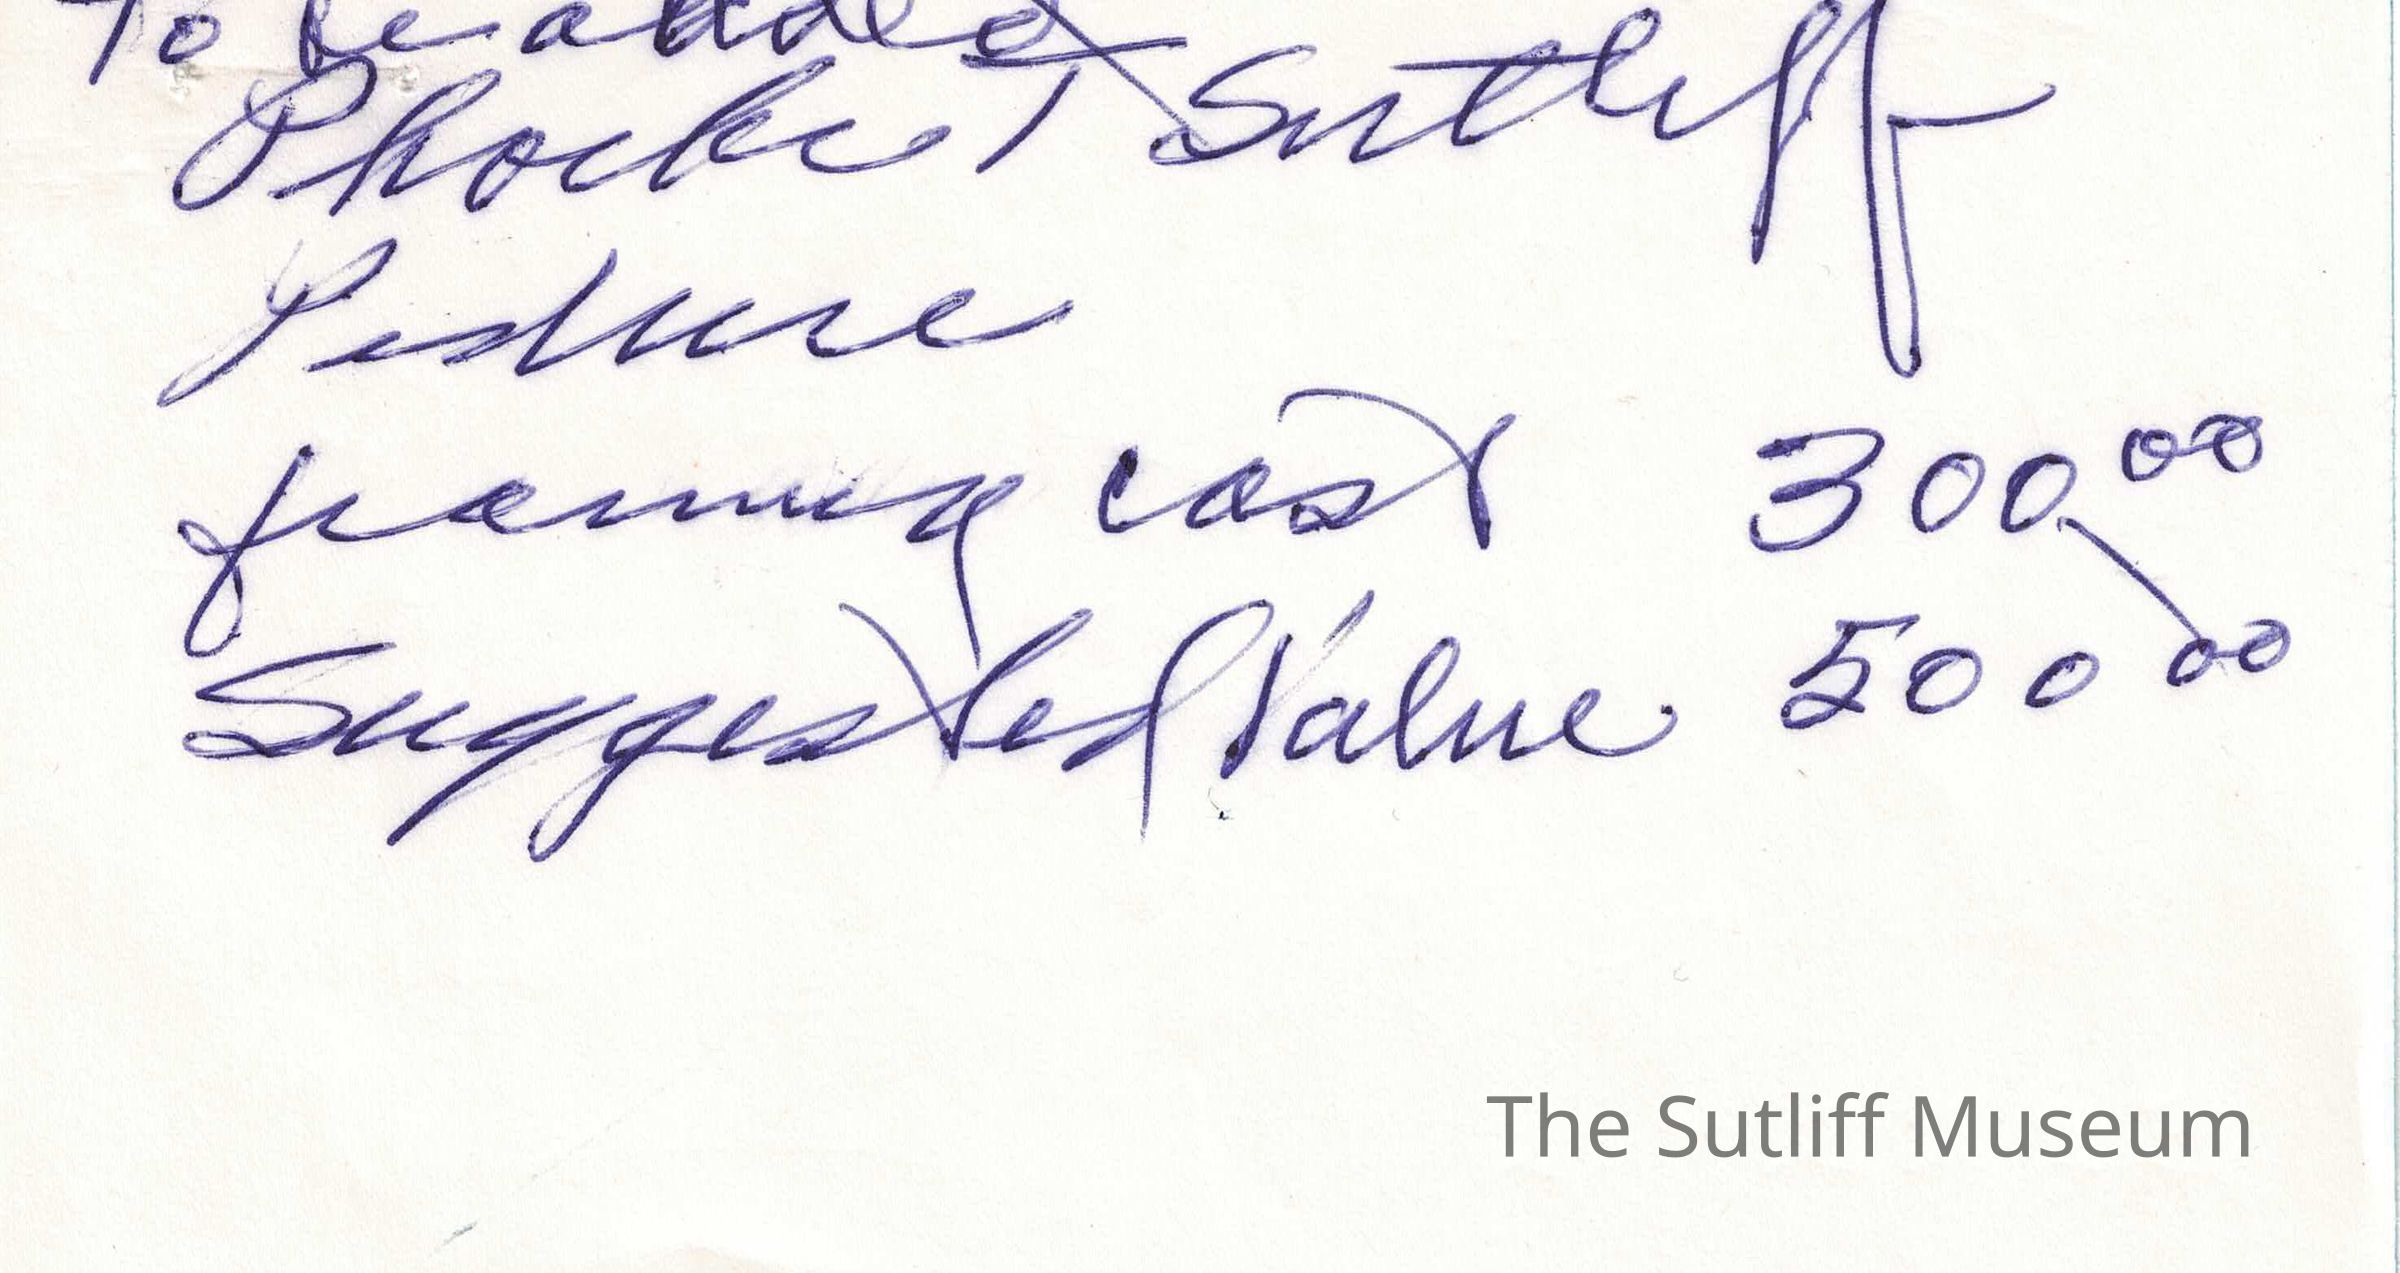 To be added
Phoebe T Sutliff
Picture
framing cost 300.00
Suggested Value 500.00
The Sutliff Museum